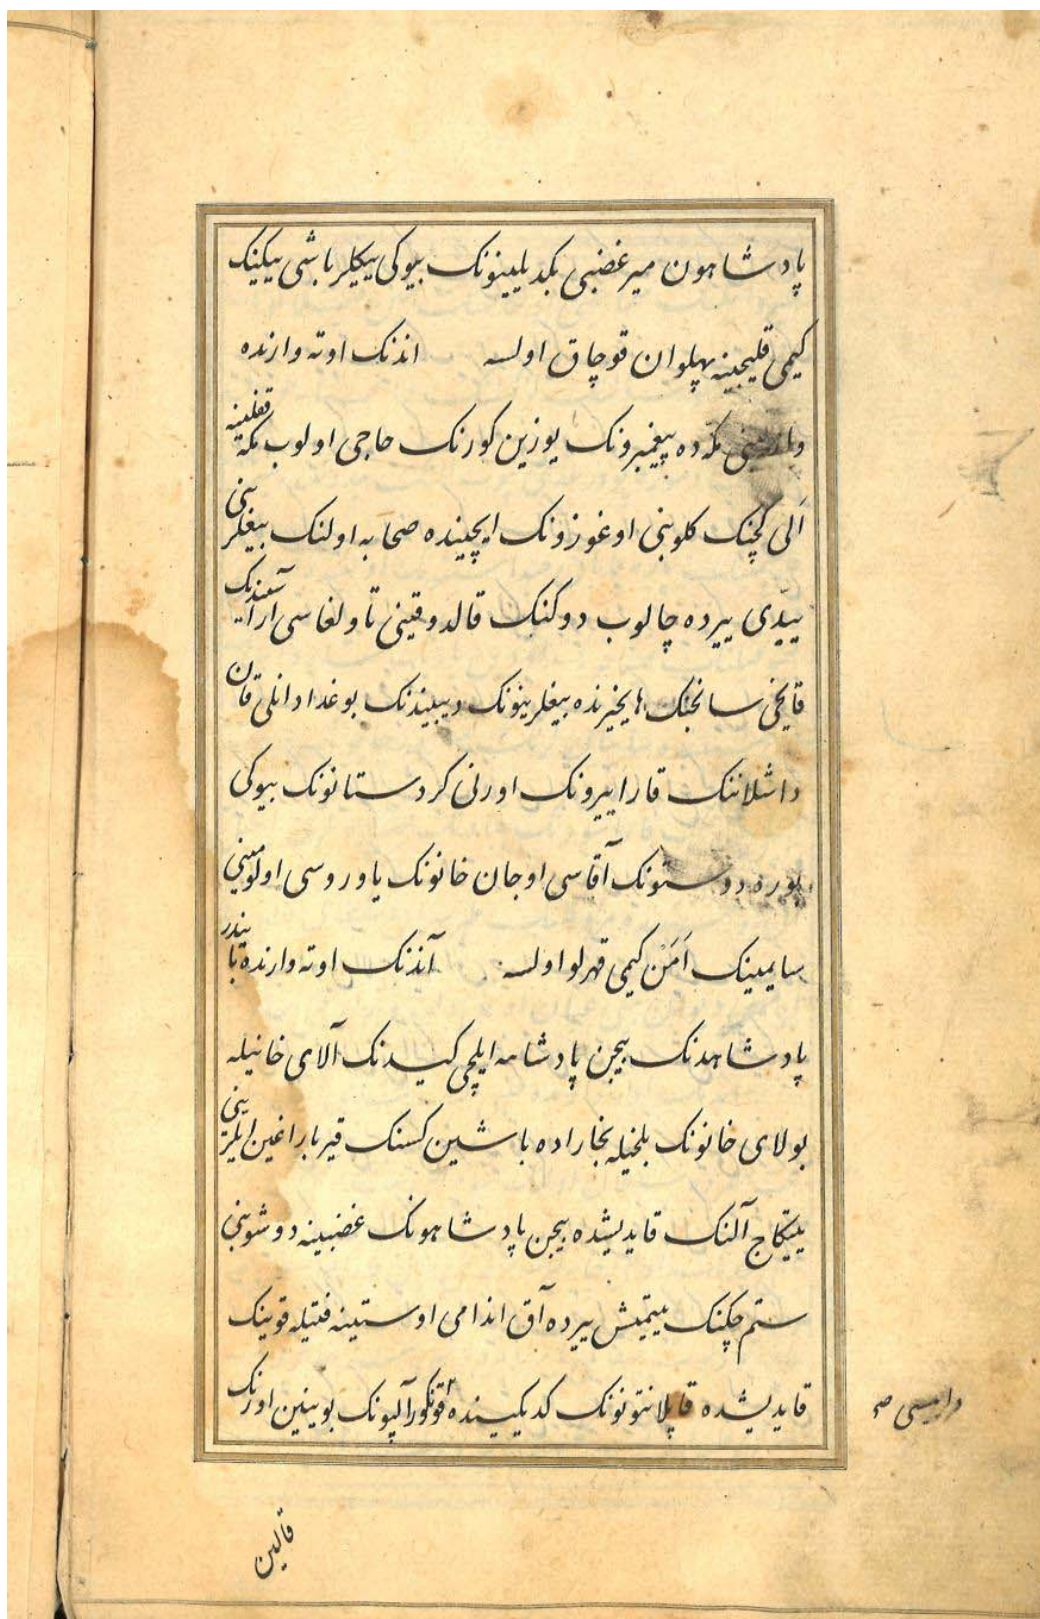 پادشاهون میر غضبی بکدیلیینونک بیوکی بیکلر باشی بیکینک
کیمی قلیجینه پهلوان قوچاق اولسه اندنک اوته وارنده
مکه ده پیغمبرونک یوزین کورنک حاجی اولوب مکه قفلینه
الی کچنک کلوبنی اوغوزونک ایچینده صحابه اولنک بیغلرینی
ییدّی ییرده چالوب دوکنک قالدوقینی تاولغاسی آراسیندنک
قایخی سانجنک هایخیرنده بیغلرینونک دیبیندنک بوغدادانلی قان
داشلاننک قارا ییرونک اورنی کردستانونک بیوکی
بوره دوستونک آقاسی اوجان خانونک یاوروسی اولومینی
سایمینک اَمَن کیمی قهرلو اولسه آندنک اوته وارنده بایندر
پادشاهدنک بیجن پادشاهه ایلچی کیدنک آلای خانیله
بولای خانونک بلخیله بخاراده باشین کسنک قیر باراغین ایلرینی
ییقاج آلنک قایدیشده بیجن پادشاهونک غضبینه دوشوبنی
ستم چکنک ییتمیش ییرده آق اندامی اوستینه فتیله قوینک
قایدیشده قاپلانتونونک کدیکینده قونکور آلپونک بوینین اورنک
قالین